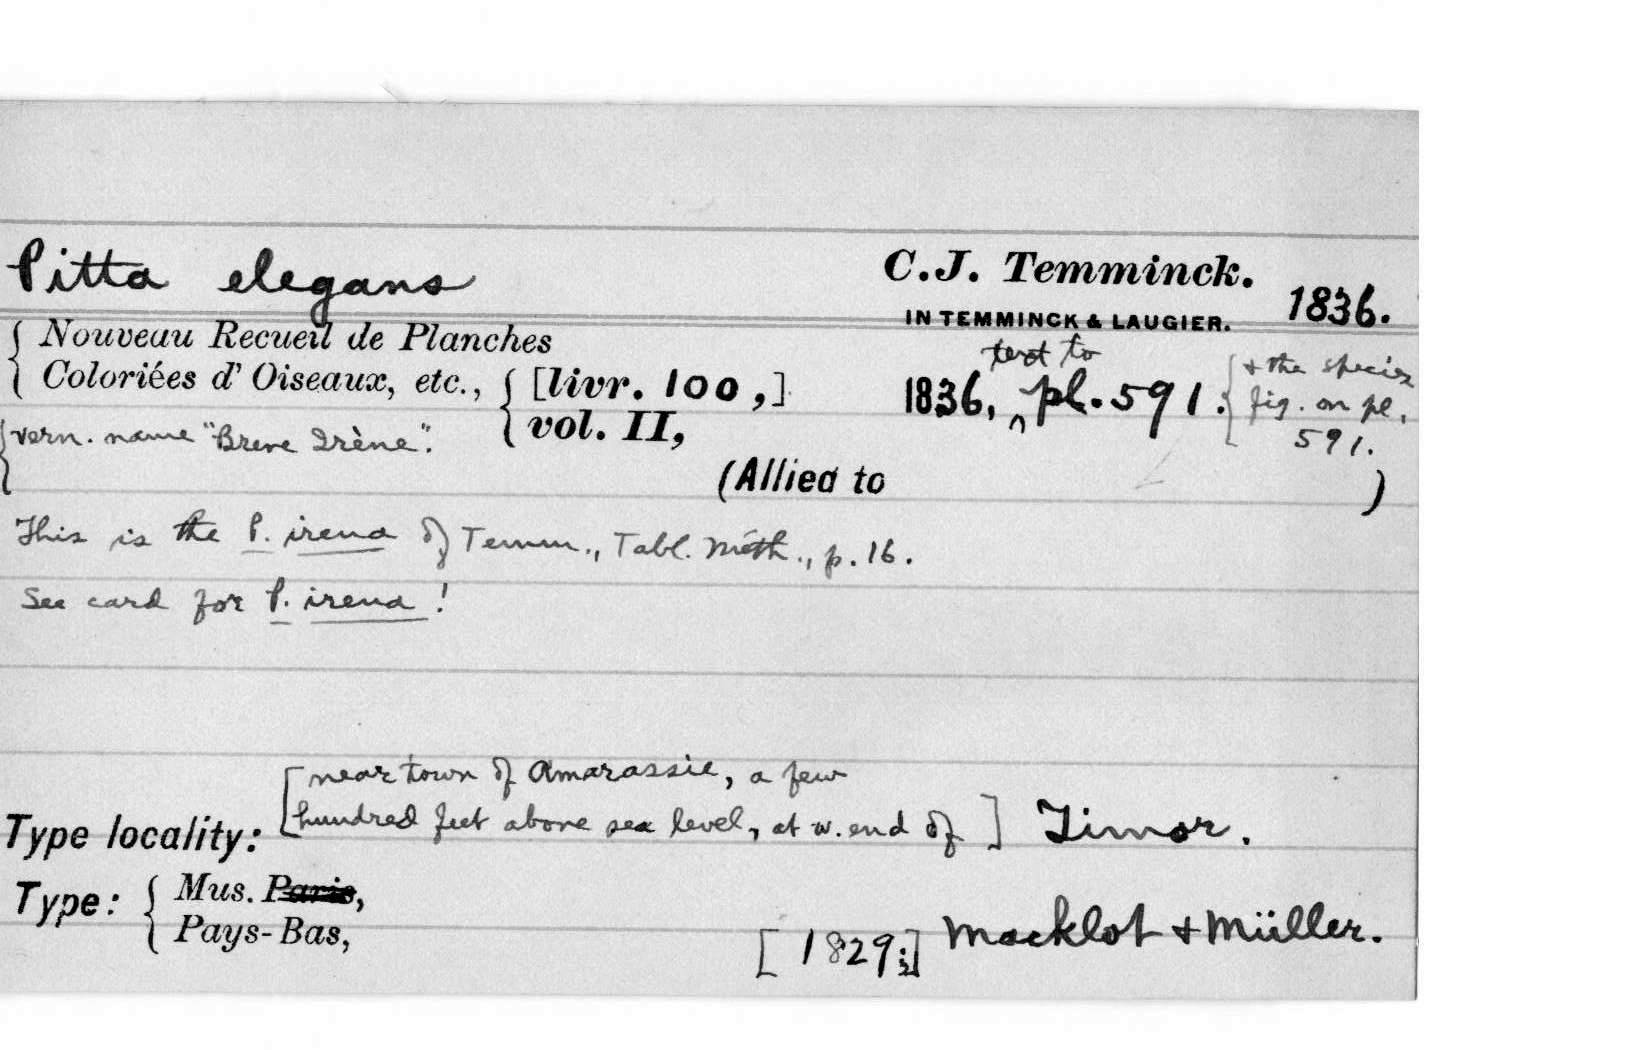 Pitta elegans C.J. Temminck.
IN TEMMINCK & LAUGIER. 1836.
Nouveau Recueil de Planches
Coloriées d' Oiseaux, etc., [livr. 100,] 1836, text to pl. 591. & the species
vol. II, fig. on pl.
vern. name "Breve Irène". 591.
(Allied to )
This is the P. irena of Temm., Tabl. Méth., p. 16.
See card for P. irena!
[near town of Amarassie, a few
Type locality: hundred feet above sea level, at w. end of] Timor.
Type: Mus. Paris,
Pays-Bas, [1829;] Macklot & Müller.